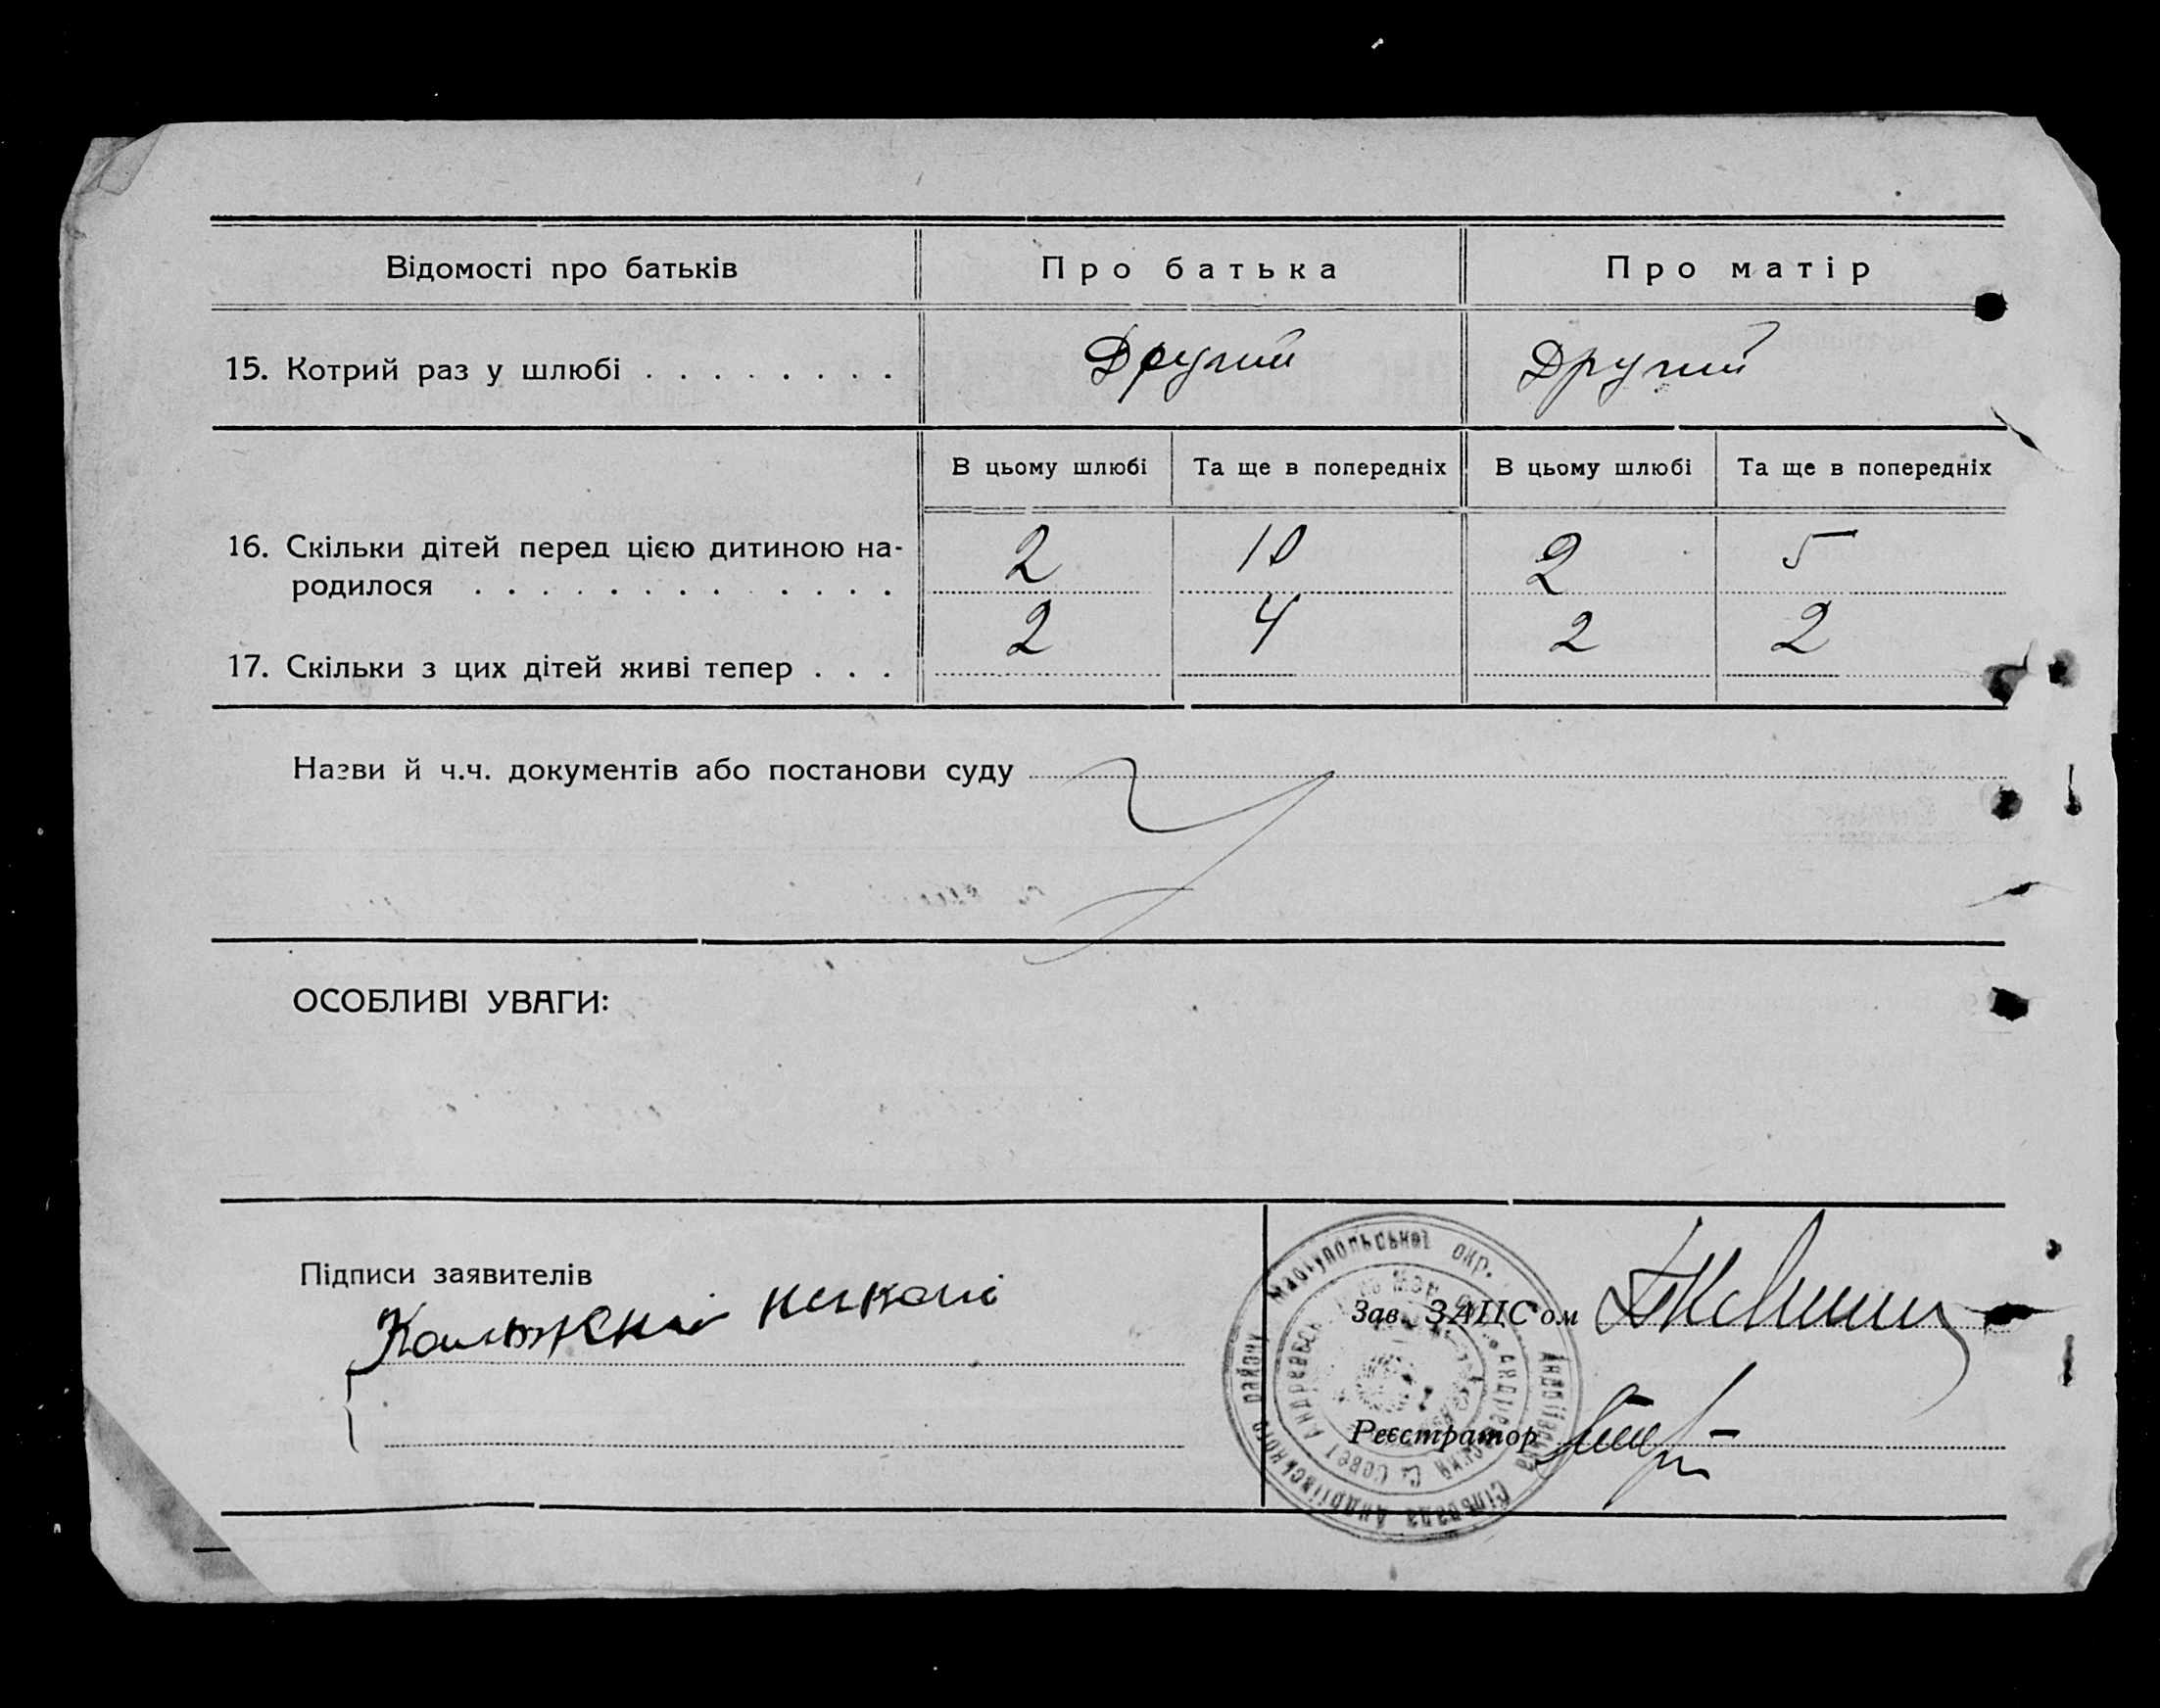 Відомості про батьків
Про батька
Про матір
15. Котрий раз у шлюбі . . . . . . . .
Другий
Другий
В цьому шлюбі
Та ще в попередніх
В цьому шлюбі
Та ще в попередніх
16. Скільки дітей перед цією дитиною на-
родилося . . . . . . . . . . . .
2
10
2
5
17. Скільки з цих дітей живі тепер . . .
2
4
2
2
Назви й ч.ч. документів або постанови суду
ОСОБЛИВІ УВАГИ:
Підписи заявителів
Зав. ЗАЦС'ом
Реєстратор
Маріупольської окр. Андріївська Сільрада Андріївського району